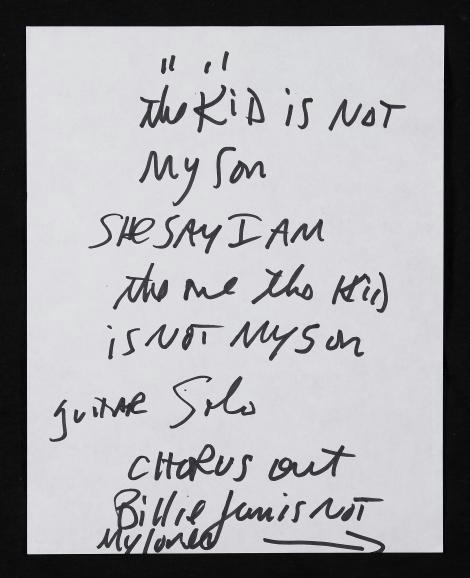 " "
the KiD is NOT
My Son
SHE SAY I AM
the one the Kid
is NOT MY Son
guitAR Solo
CHORUS out
Billie Jean is NOT
My lover →